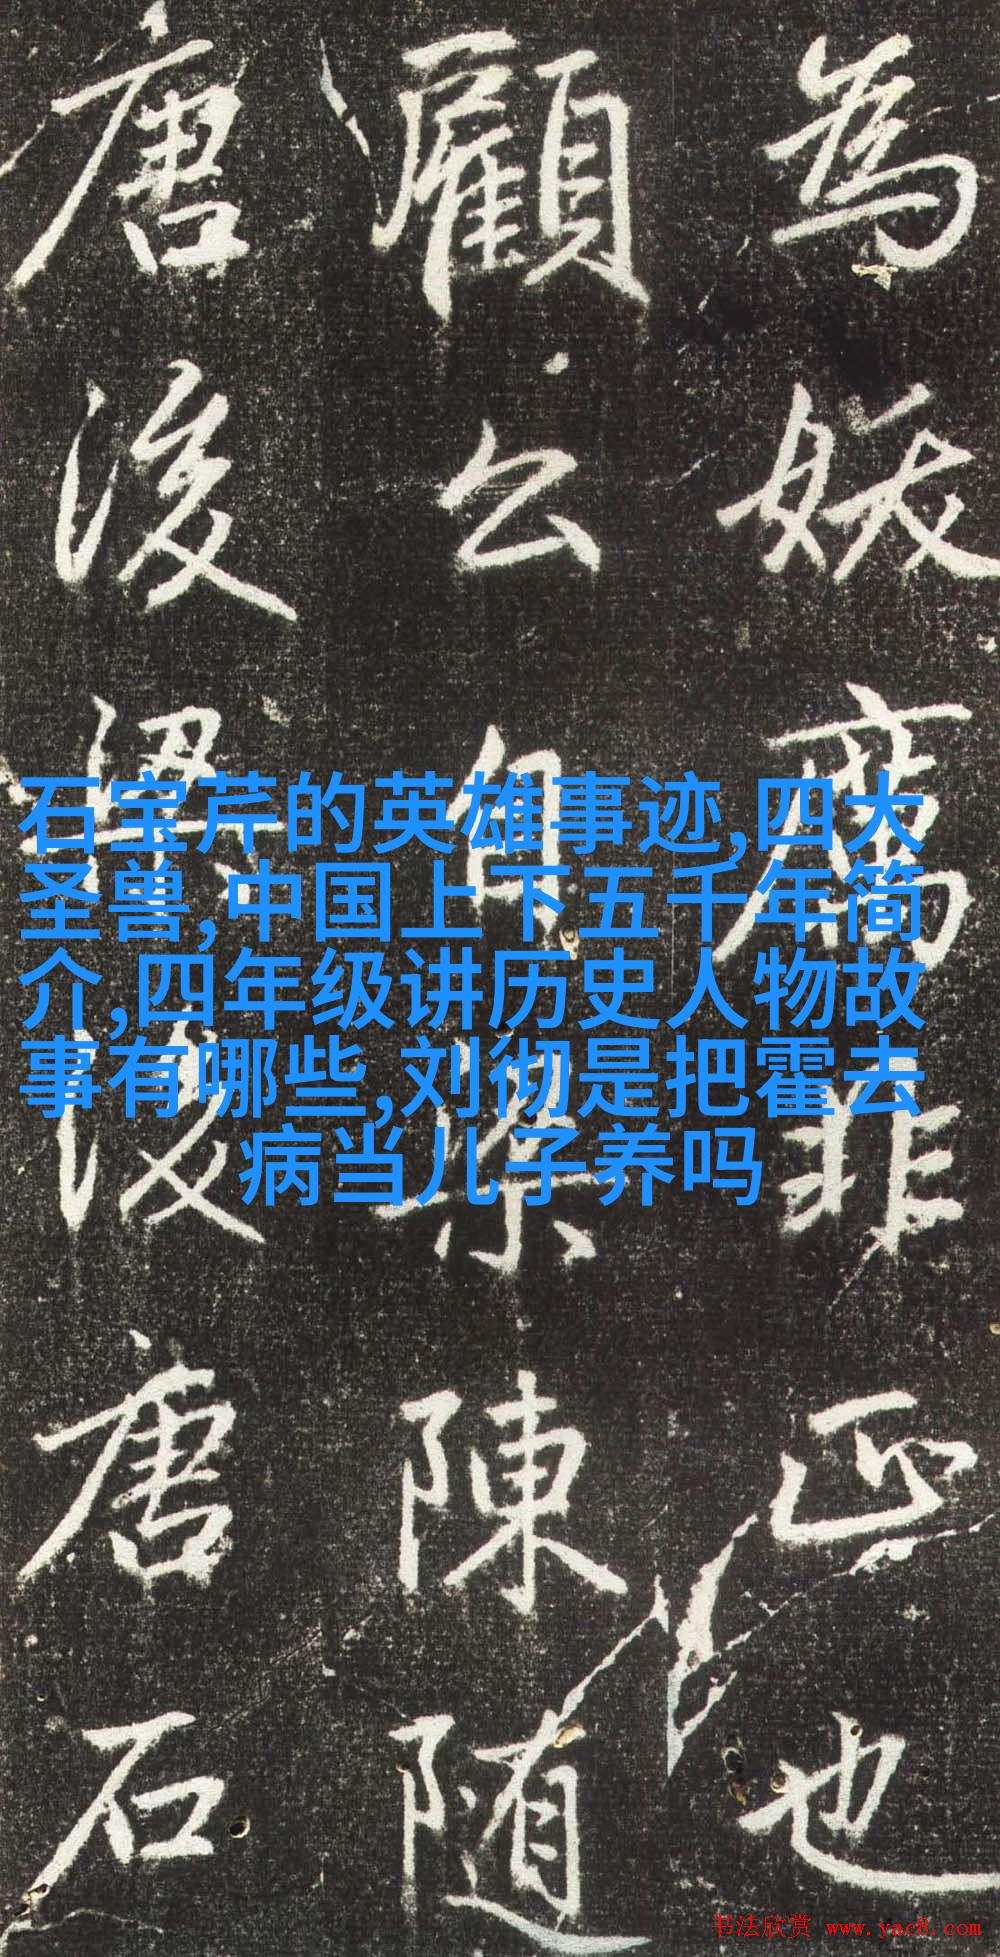 為妖厲非正也
顧公自梁陳随
唐後梁後唐石
石宝芹的英雄事迹,四大
圣兽,中国上下五千年简
介,四年级讲历史人物故
事有哪些,刘彻是把霍去
病当儿子养吗
书法欣赏 www.yac8.com